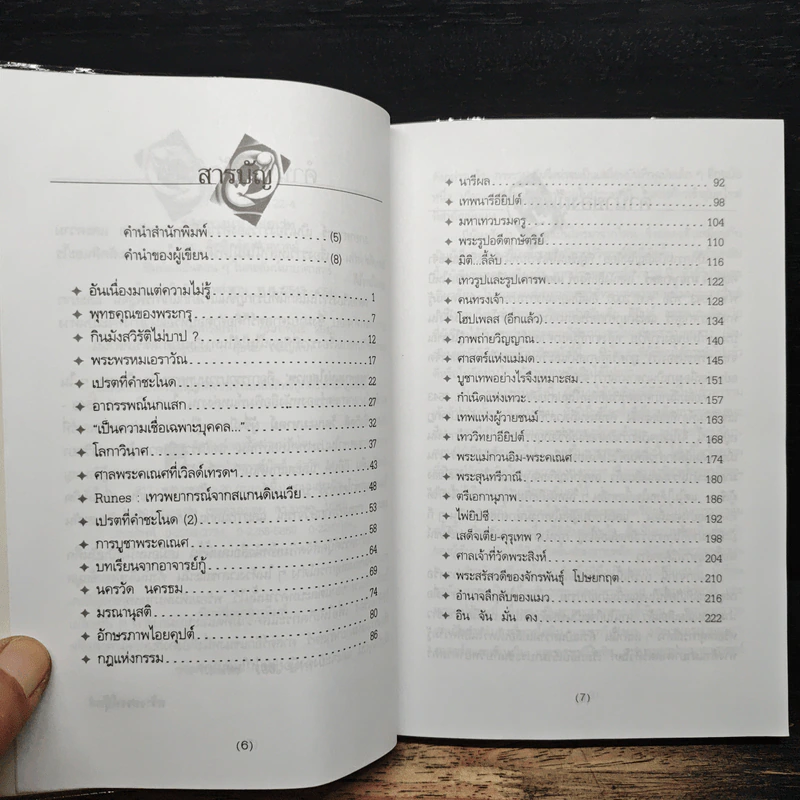 สารบัญ
คำนำสำนักพิมพ์ (5)
คำนำของผู้เขียน (8)
อันเนื่องมาแต่ความไม่รู้ 1
พุทธคุณของพระกรุ 7
กินมังสวิรัติไม่บาป ? 12
พระพรหมเอราวัณ 17
เปรตที่คำชะโนด 22
อาถรรพณ์นกแสก 27
“เป็นความเชื่อเฉพาะบุคคล...” 32
โลกาวินาศ 37
ศาลพระคเณศที่เวิลด์เทรดฯ 43
Runes : เทวพยากรณ์จากสแกนดิเนเวีย 48
เปรตที่คำชะโนด (2) 53
การบูชาพระคเณศ 58
บทเรียนจากอาจารย์กู้ 64
นครวัด นครธม 69
มรณานุสติ 74
อักษรภาพไอยคุปต์ 80
กฎแห่งกรรม 86
(6)
นารีผล 92
เทพนารีอียิปต์ 98
มหาเทวบรมครู 104
พระรูปอดีตกษัตริย์ 110
มิติ...ลี้ลับ 116
เทวรูปและรูปเคารพ 122
คนทรงเจ้า 128
โฮปเพลส (อีกแล้ว) 134
ภาพถ่ายวิญญาณ 140
ศาสตร์แห่งแม่มด 145
บูชาเทพอย่างไรจึงเหมาะสม 151
กำเนิดแห่งเทวะ 157
เทพแห่งผู้วายชนม์ 163
เทววิทยาอียิปต์ 168
พระแม่กวนอิม-พระคเณศ 174
พระสุนทรีวาณี 180
ตรีเอกานุภาพ 186
ไพ่ยิปซี 192
เสด็จเตี่ย-คุรุเทพ ? 198
ศาลเจ้าที่วัดพระสิงห์ 204
พระสรัสวดีของจักรพันธุ์ โปษยกฤต 210
อำนาจลึกลับของแมว 216
อิน จัน มั่น คง 222
(7)